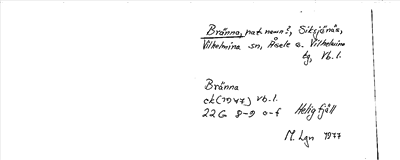 Bränna, nat.namn?, Siksjönäs,
Vilhelmina sn, Åsele o. Vilhelmina
tg, Vb.l.
Bränna
ek (1947) Vb.l.
22G 8-9 e-f Heligfjäll
M. Lgn 1977